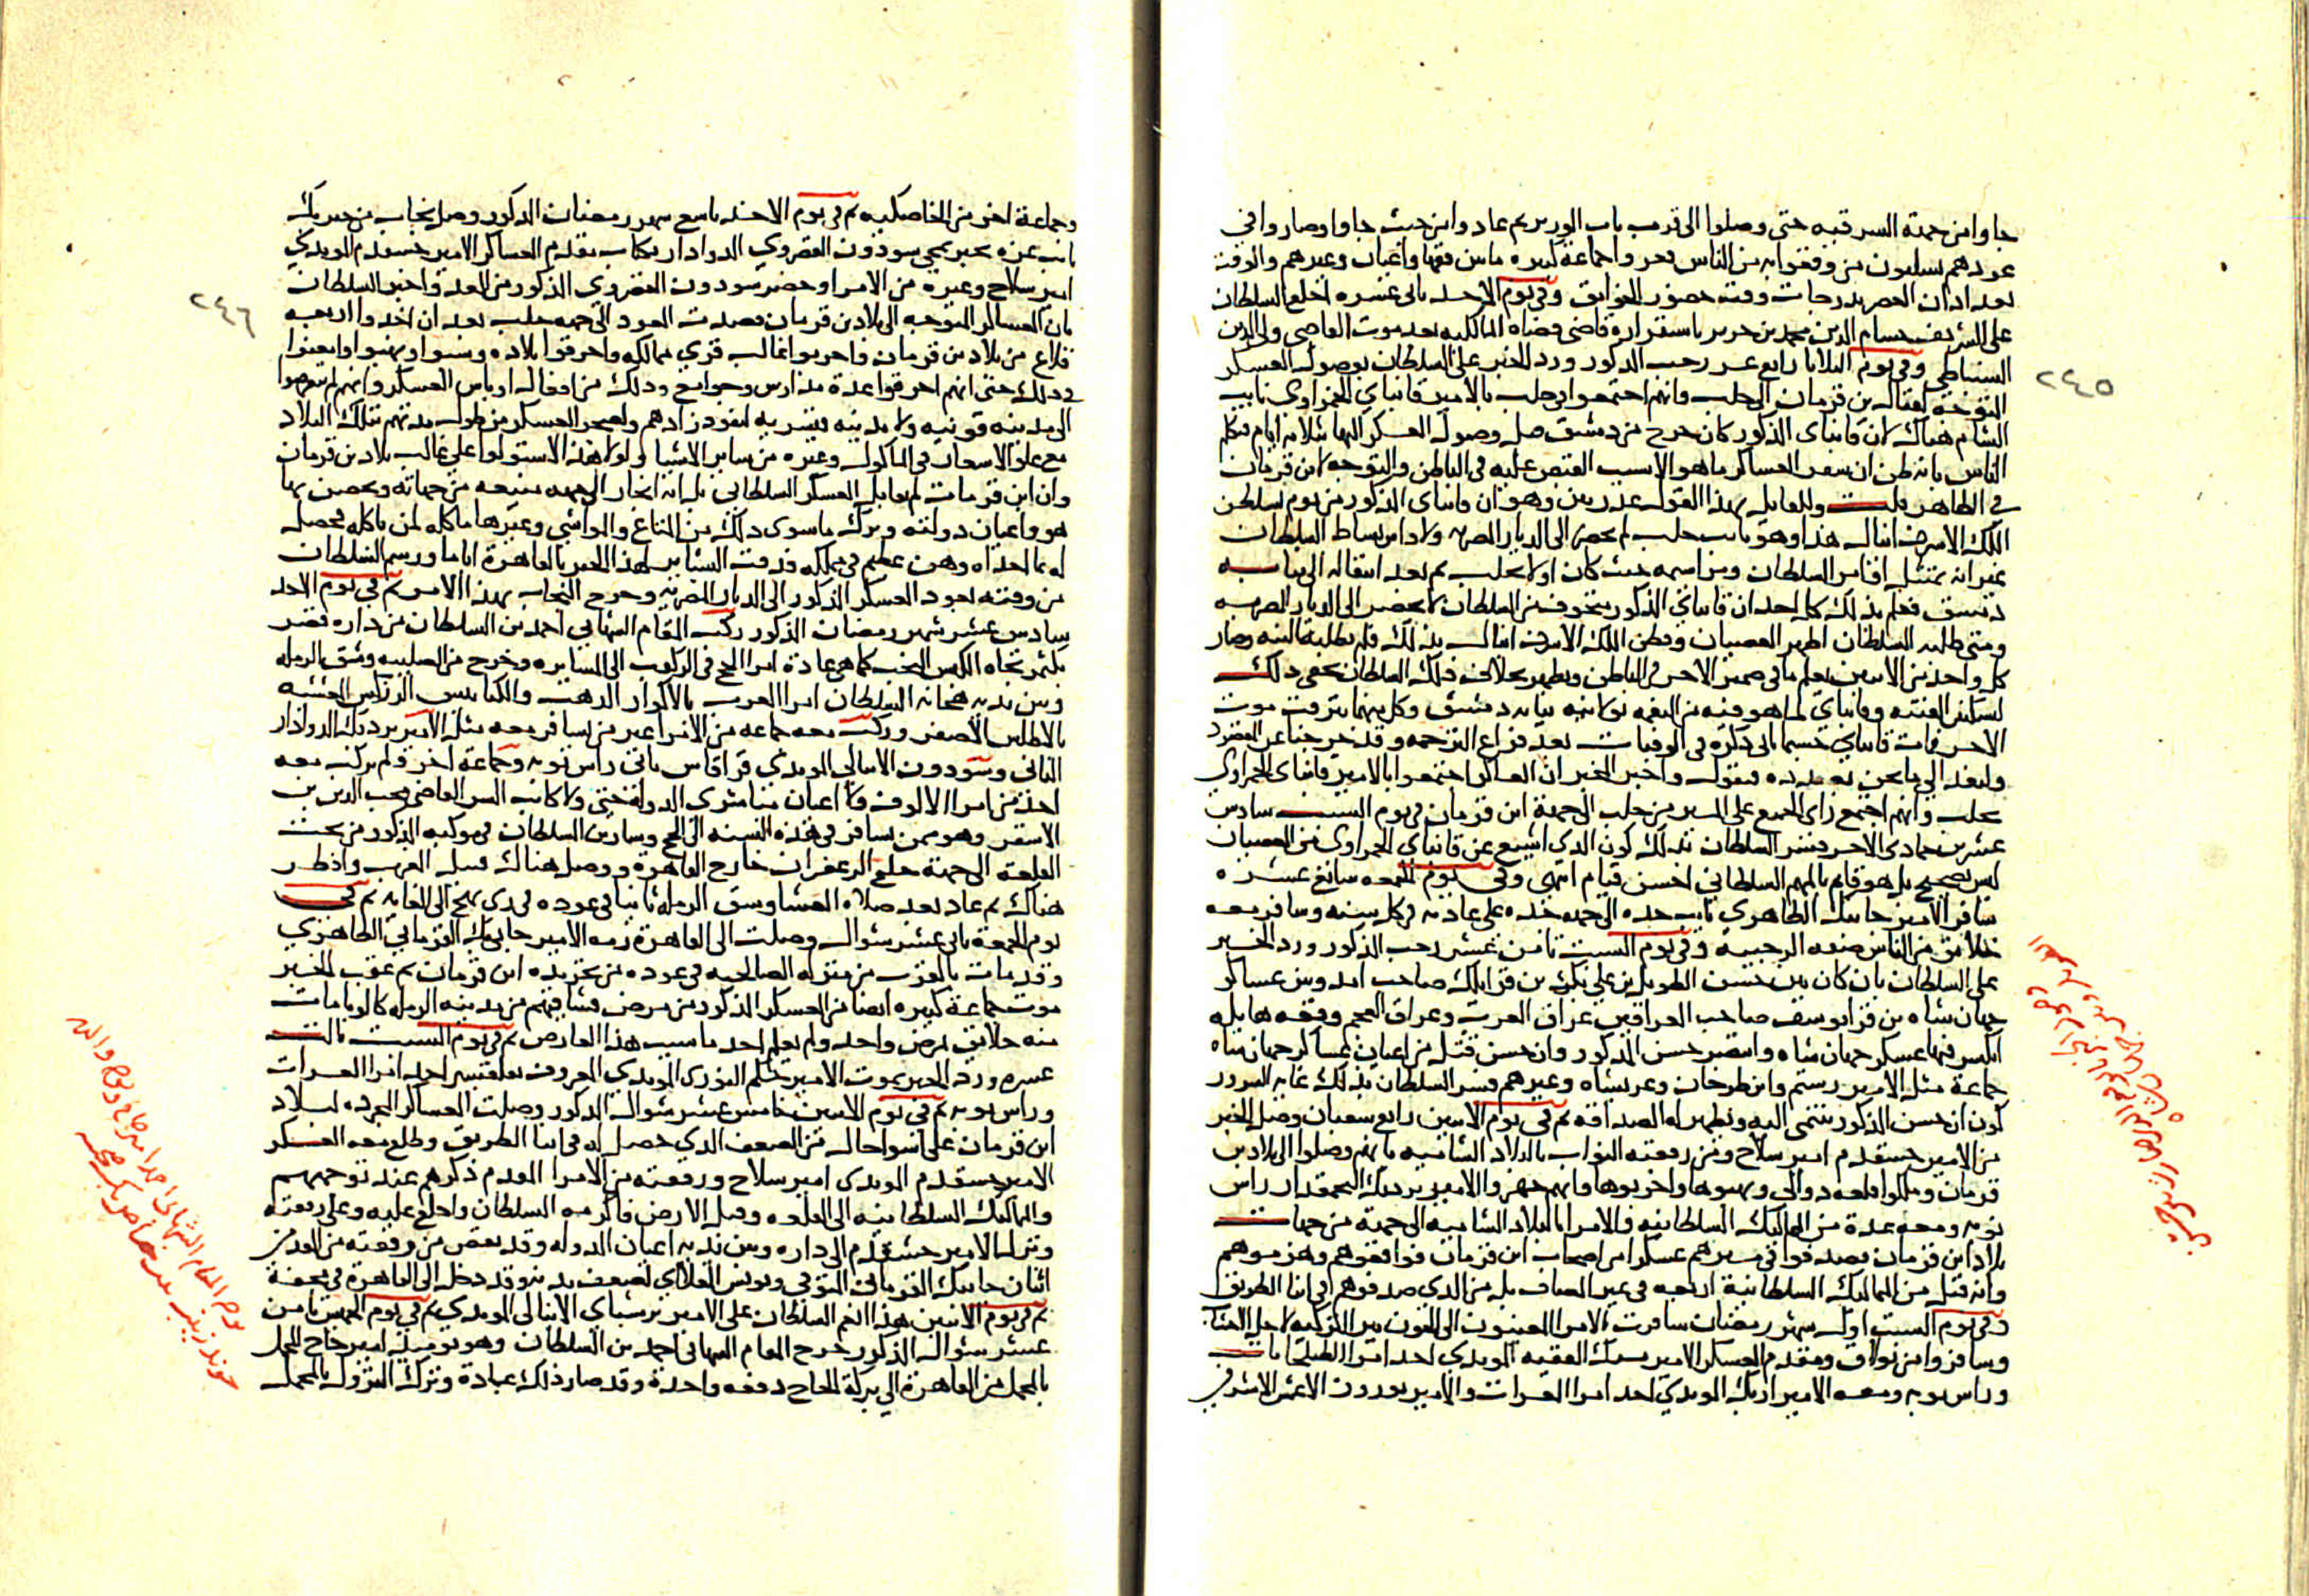 جاوا من جهة الشرقية حتى وصلوا الى قرب باب الوزير ثم عادوا من حيث جاوا وصاروا في
عودهم يسلبون من وقفوا به من الناس فعروا جماعة كبيرة ما بين فقها واعيان وغيرهم والوقت
بعد اذان العصر بدرجات وقت حضور الخوانق وفي يوم الاحد ثاني عشره اخلع السلطان
على الشريف حسام الدين محمد بن حريز باستقراره قاضي قضاة المالكية بعد موت القاضي ولي الدين
السنباطي وفي يوم الثلاثا رابع عشر رجب المذكور ورد الخبر على السلطان بوصول العسكر
المتوجه لقتال بن قرمان الى حلب وانهم اجتمعوا في حلب بالامير قانباي الحمزاوي نايب
الشام هناك لان قانباي المذكور كان خرج من دمشق قبل وصول العسكر اليها بثلاثة ايام فتكلم
الناس بانه ظن ان سفر العساكر ما هو الا بسبب القبض عليه في الباطن والتوجه لابن قرمان
في الظاهر قلت وللقايل بهذا القول عذر بين وهو ان قانباي المذكور من يوم تسلطن
الملك الاشرف اينال هذا وهو نايب حلب لم يحضر الى الديار المصرية ولا داس بساط السلطان
غير انه يمتثل اوامر السلطان ومراسيمه حيث كان اولا بحلب ثم بعد انتقاله الى نيابة
دمشق فعلم بذلك كل احد ان قانباي المذكور متخوف من السلطان لا يحضر الى الديار المصرية
ومتى طلبه السلطان اظهر العصيان وفطن الملك الاشرف اينال بذلك فلم يطلبه البتة وصار
كل واحد من الاثنين يعلم ما في ضمير الاخر في الباطن ويظهر خلاف ذلك السلطان يخفي ذلك
لتسكين الفتنة وقانباي لما هو فيه من النعمة بولايته نيابة دمشق وكل منهما يترقب موت
الاخر فمات قانباي حسبما ياتي ذكره في الوفيات بعد فراغ الترجمة وقد خرجنا عن المقصود
ولنعد الى ما نحن بصدده فنقول واخبر المخبر ان العساكر اجتمعوا بالامير قانباي الحمزاوي
بحلب وانهم اجتمع راي الجميع على المسير من حلب الى جهة ابن قرمان في يوم السبت سادس
عشرين جمادى الاخر فسر السلطان بذلك كون الذي اشيع عن قانباي الحمزاوي من العصيان
ليس بصحيح بل هو قايم بالمهم السلطاني احسن قيام انتهى وفي يوم الجمعة سابع عشره
سافر الامير جانبك الظاهري نايب جدة الى جهة جدة على عادته في كل سنة وسافر معه
خلايق من الناس صفة الرجبية وفي يوم السبت ثامن عشر رجب المذكور ورد الخبر
على السلطان بان كان بين حسن الطويل بن علي بك بن قرايلك صاحب امد وبين عساكر
جهان شاه بن قرايوسف صاحب العراقين عراق العرب وعراق العجم وقعة هايلة
انكسر فيها عسكر جهان شاه وانتصر حسن المذكور وان حسن قتل من اعيان عساكر جهان شاه
جماعة مثل الامير رستم وابن طرخان وعربشاه وغيرهم فسر السلطان بذلك غاية السرور
كون ان حسن المذكور ينتمي اليه ويظهر له الصداقة ثم في يوم الاثنين رابع شعبان وصل الخبر
من الامير خشقدم امير سلاح ومن رفقته النواب بالبلاد الشامية بانهم وصلوا الى بلاد بن
قرمان وملكوا قلعة دوالي ونهبوها واخربوها وانهم جهزوا الامير بردبك البجمقدار راس
نوبة ومعه عدة من المماليك السلطانية والامرا بالبلاد الشامية الى جهة من جهات
بلاد ابن قرمان فصدفوا في مسيرهم عسكرا من اصحاب ابن قرمان فواقعوهم وهزموهم
وانه قتل من المماليك السلطانية اربعة في غير المصاف بل من الذي صدفوهم في اثنا الطريق
وفي يوم السبت اول شهر رمضان سافرت الامرا المعينون الى الجون من التركية لاجل الاخشاب
وسافروا من بولاق ومقدم العسكر الامير يشبك الفقيه المويدي احد امرا الطبلخانات
وراس نوبة ومعه الامير ازبك المويدي احد امرا العشرات والامير نوروز الاعمش الاشرفي
٢٤٥
وجماعة اخر من الخاصكية ثم في يوم الاحد تاسع شهر رمضان المذكور وصل نجاب من خيربك
نايب غزة يخبر بمجي سودون القصروي الدوادار بكتاب مقدم العساكر الامير خشقدم المويدي
امير سلاح وغيره من الامرا وحضر سودون القصروي المذكور من الغد واخبر السلطان
بان العساكر المتوجه الى بلاد بن قرمان قصدت العود الى جهة حلب بعد ان اخذوا اربعة
قلاع من بلاد بن قرمان واخربوا غالب قرى ممالكه واحرقوا بلاده وسبوا ونهبوا وامعنوا
في ذلك حتى انهم احرقوا عدة مدارس وجوامع وذلك من افعال اوباش العسكر وانهم لم يتعرضوا
الى مدينة قونية ولا مدينة قيسرية لنفود زادهم ولضجر العسكر من طول مدتهم بتلك البلاد
مع غلو الاسعار في الماكول وغيره من ساير الاشيا ولولا هذا لاستولوا على غالب بلاد بن قرمان
وان ابن قرمان لم يقابل العسكر السلطاني بل انه انحاز الى جهة منيعة من جهاته وتحصن بها
هو واعيان دولته وترك ما سوى ذلك من المتاع والمواشي وغيرها ماكلة لمن ياكله فحصل
له بما اخذاه وهن عظيم في مملكه فدقت البشاير لهذا الخبر بالقاهرة اياما ورسم السلطان
من وقته بعود العسكر المذكور الى الديار المصرية وخرج النجاب بهذا الامر ثم في يوم الاحد
سادس عشر شهر رمضان المذكور ركب المقام الشهابي احمد بن السلطان من داره قصر
بكتمر تجاه الكبش النجب كما هي عادة امرا الحج في الركوب الى المسايرة وخرج من الصليبة وشق الرملة
وبين يديه هجانة السلطان امرا العرب بالاكوار الذهب والكنابيش الزركش المغشية
بالاطلس الاصفر وركب معه جماعة من الامرا غير من يسافر معه مثل الامير بردبك الدوادار
الثاني وسودون الاينالي المويدي قراقاس ثاني راس نوبة وجماعة اخر ولم يركب معه
احد من امرا الالوف ولا اعيان مباشري الدولة حتى ولا كاتب السر القاضي محب الدين بن
الاشقر وهو ممن يسافر في هذه السنة الى الحج وسار بن السلطان في موكبه المذكور من تحت
القلعة الى جهة خليج الزعفران خارج القاهرة ووصل هناك قبيل الغرب وافطر
هناك ثم عاد بعد صلاة العشا وشق الرملة ثانيا في عوده في زي بهج الى الغاية ثم في
يوم الجمعة ثاني عشر شوال وصلت الى القاهرة رمة الامير جانبك القرماني الظاهري
وقد مات بالقرب من منزلة الصالحية في عوده من تجريدة ابن قرمان ثم عقب الخبر
موت جماعة كبيرة ايضا من العسكر المذكور من مرض فشا فيهم من مدينة الرملة كالوبا مات
منه خلايق بمرض واحد ولم يعلم احد ما سبب هذا العارض ثم في يوم السبت ثالث
عشره ورد الخبر بموت الامير جكم النوري المويدي المعروف بقلقسيز احد امرا العشرات
وراس نوبة ثم في يوم الاثنين خامس عشر شوال المذكور وصلت العساكر المجردة لبلاد
ابن قرمان على اسوا حال من الضعف الذي حصل له في اثنا الطريق وطلع معه العسكر
الامير خشقدم المويدي امير سلاح ورفقته من الامرا المقدم ذكرهم عند توجههم
والمماليك السلطانية الى القلعة وقبل الارض فاكرمه السلطان واخلع عليه وعلى رفقته
ونزل الامير خشقدم الى داره وبين يديه اعيان الدولة وقد نقص من رفقته من المقدمين
اثنان جانبك القرماني المتوفى ويونس العلاي لضعف بدنه وقد دخل الى القاهرة في محفة
ثم في يوم الاثنين هذا انعم السلطان على الامير برسباي الاينالي المويدي ثم في يوم الخميس ثامن
عشر شوال المذكور خرج المقام الشهابي احمد بن السلطان وهو يوميذ امير حاج المحمل
بالمحمل من القاهرة الى بركة الحاج دفعة واحدة وقد صار ذلك عبادة وترك النزول بالمحمل
٢٤٦
يوم المقام الشهابي احمد امير حاج واخوه والدته
خوند زينب بنت خاص بك صحبته